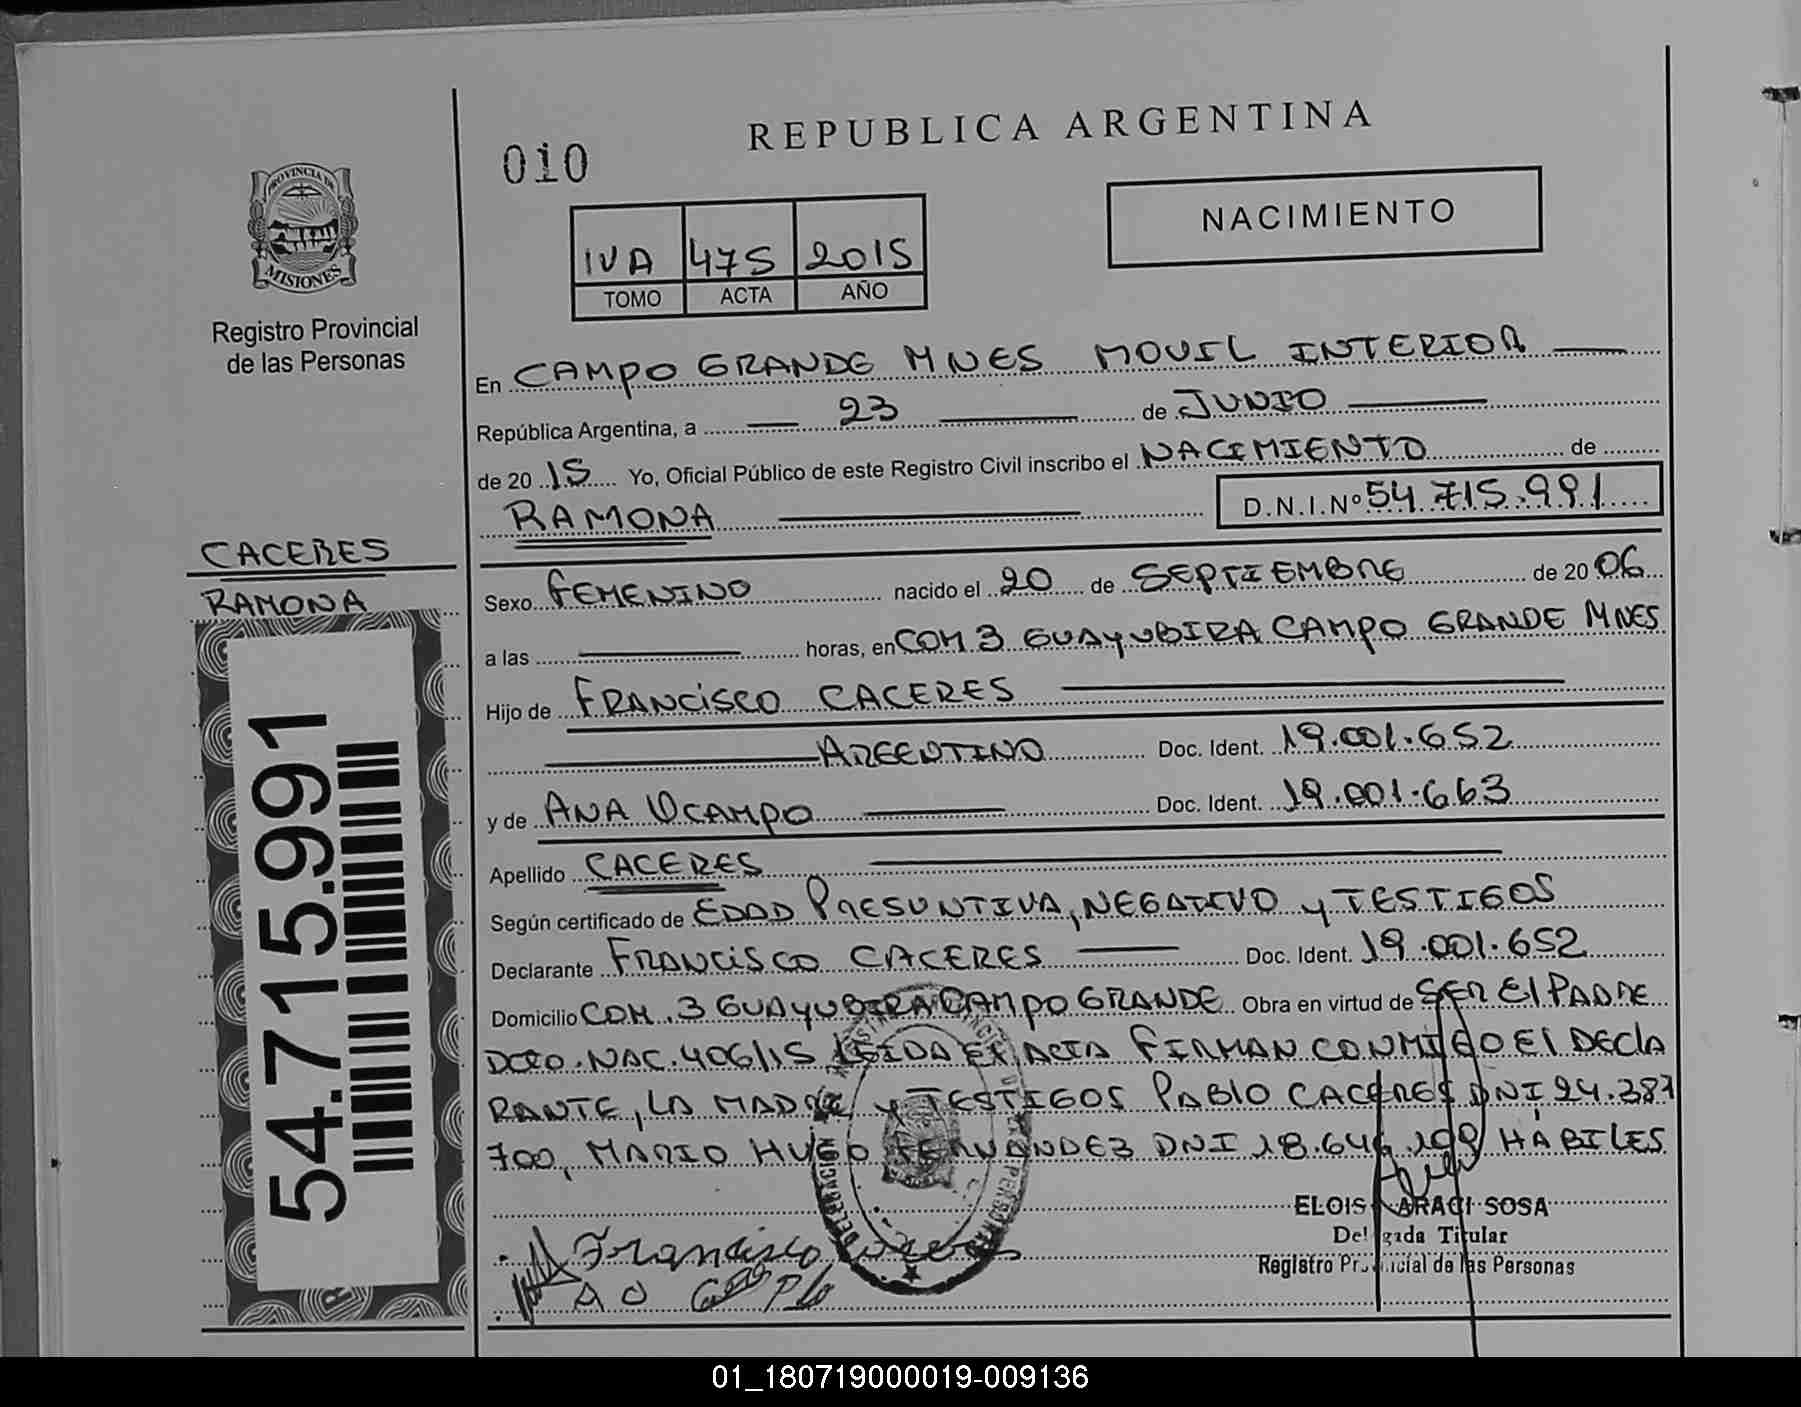 REPUBLICA ARGENTINA
010
NACIMIENTO
IVA 475 2015
TOMO ACTA AÑO
PROVINCIA DE
MISIONES
Registro Provincial
de las Personas
En CAMPO GRANDE MNES MOVIL INTERIOR
República Argentina, a 23 de JUNIO
de 2015 Yo, Oficial Público de este Registro Civil inscribo el NACIMIENTO de
RAMONA D.N.I.Nº 54.715.991
CACERES
RAMONA
Sexo FEMENINO nacido el 20 de SEPTIEMBRE de 2006
a las horas, en COM 3 GUAYUBIRA CAMPO GRANDE MNES
Hijo de FRANCISCO CACERES
ARGENTINO Doc. Ident. 19.001.652
y de ANA OCAMPO Doc. Ident. 19.001.663
Apellido CACERES
Según certificado de EDAD PRESUNTIVA, NEGATIVO y TESTIGOS
Declarante FRANCISCO CACERES Doc. Ident. 19.001.652
Domicilio COM. 3 GUAYUBIRA CAMPO GRANDE Obra en virtud de SER El PADRE
DCRO. NAC. 406/15 LEIDA El ACTA FIRMAN CONMIGO El DECLA
RANTE, LA MADRE y TESTIGOS PABLO CACERES DNI 24.387
700, MARIO HUGO FERNANDEZ DNI 18.646.109 HABILES
54.715.991
ELOISA ARACI SOSA
Delegada Titular
Registro Provincial de las Personas
Francisco Caceres
AO
01_180719000019-009136